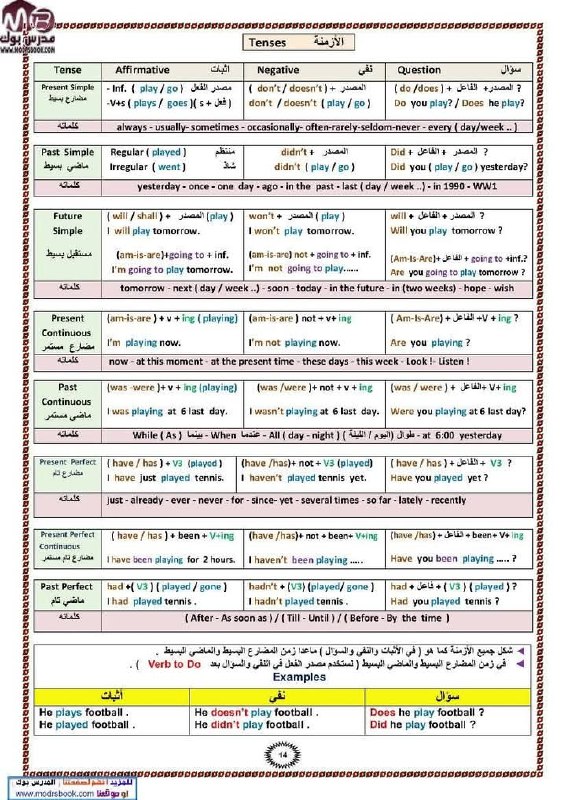 مدرس بوك
WWW.MODRSBOOK.COM
Tenses الأزمنة
Tense Affirmative اثبات Negative نفي Question سؤال
Present Simple - Inf. ( play / go ) مصدر الفعل ( don't / doesn't ) + المصدر ( do /does ) + الفاعل +المصدر ?
مضارع بسيط -V+s ( plays / goes )( s + فعل ) don't / doesn't ( play / go ) Do you play? / Does he play?
كلماته always - usually- sometimes - occasionally- often-rarely-seldom-never - every ( day/week .. )
Past Simple Regular ( played ) منتظم didn't + المصدر Did + الفاعل + المصدر ?
ماضي بسيط Irregular ( went ) شاذ didn't ( play / go ) Did you ( play / go ) yesterday?
كلماته yesterday - once - one day - ago - in the past - last ( day / week ..) - in 1990 - WW1
Future Simple ( will / shall ) + المصدر ( play ) won't + المصدر ( play ) will + الفاعل + المصدر ?
I will play tomorrow. I won't play tomorrow. Will you play tomorrow ?
مستقبل بسيط (am-is-are)+going to + inf. (am-is-are) not + going to + inf. (Am-Is-Are)+ الفاعل + going to +inf.?
I'm going to play tomorrow. I'm not going to play...... Are you going to play tomorrow ?
كلماته tomorrow - next ( day / week ..) - soon - today - in the future - in (two weeks) - hope - wish
Present Continuous (am-is-are ) + v + ing ( playing) (am-is-are ) not + v+ ing ( Am-Is-Are)+ الفاعل +V + ing ?
مضارع مستمر I'm playing now. I'm not playing now. Are you playing ?
كلماته now - at this moment - at the present time - these days - this week - Look !- Listen !
Past Continuous (was -were )+ v + ing (playing) (was /were )+ not + v + ing (was / were ) + الفاعل+ V+ ing
ماضي مستمر I was playing at 6 last day. I wasn't playing at 6 last day. Were you playing at 6 last day?
كلماته While ( As ) بينما - When عندما - All ( day - night ) ( اليوم / الليلة ) طوال - at 6:00 yesterday
Present Perfect ( have / has ) + V3 (played ) (have /has)+ not + V3 (played) ( have / has ) + الفاعل + V3 ?
مضارع تام I have just played tennis. I haven't played tennis yet. Have you played yet ?
كلماته just - already - ever - never - for - since- yet - several times - so far - lately - recently
Present Perfect Continuous ( have / has ) + been + V+ing (have /has)+ not + been+ V+ing (have /has) + الفاعل + been+ V+ ing
مضارع تام مستمر I have been playing for 2 hours. I haven't been playing ..... Have you been playing ..... ?
Past Perfect had +( V3 ) ( played / gone ) hadn't + (V3) (played/ gone ) had + فاعل + ( V3 ) ( played ) ?
ماضي تام I had played tennis . I hadn't played tennis . Had you played tennis ?
كلماته ( After - As soon as ) / ( Till - Until ) / ( Before - By the time )
شكل جميع الأزمنة كما هو ( في الأثبات والنفي والسؤال ) ماعدا زمن المضارع البسيط والماضي البسيط .
في زمن المضارع البسيط والماضي البسيط ( نستخدم مصدر الفعل في النفي والسؤال بعد Verb to Do ) .
Examples
أثبات نفي سؤال
He plays football . He doesn't play football . Does he play football ?
He played football . He didn't play football . Did he play football ?
14
للمزيد انضم لصفحتنا : المدرس بوك
او موقعنا www.modrsbook.com